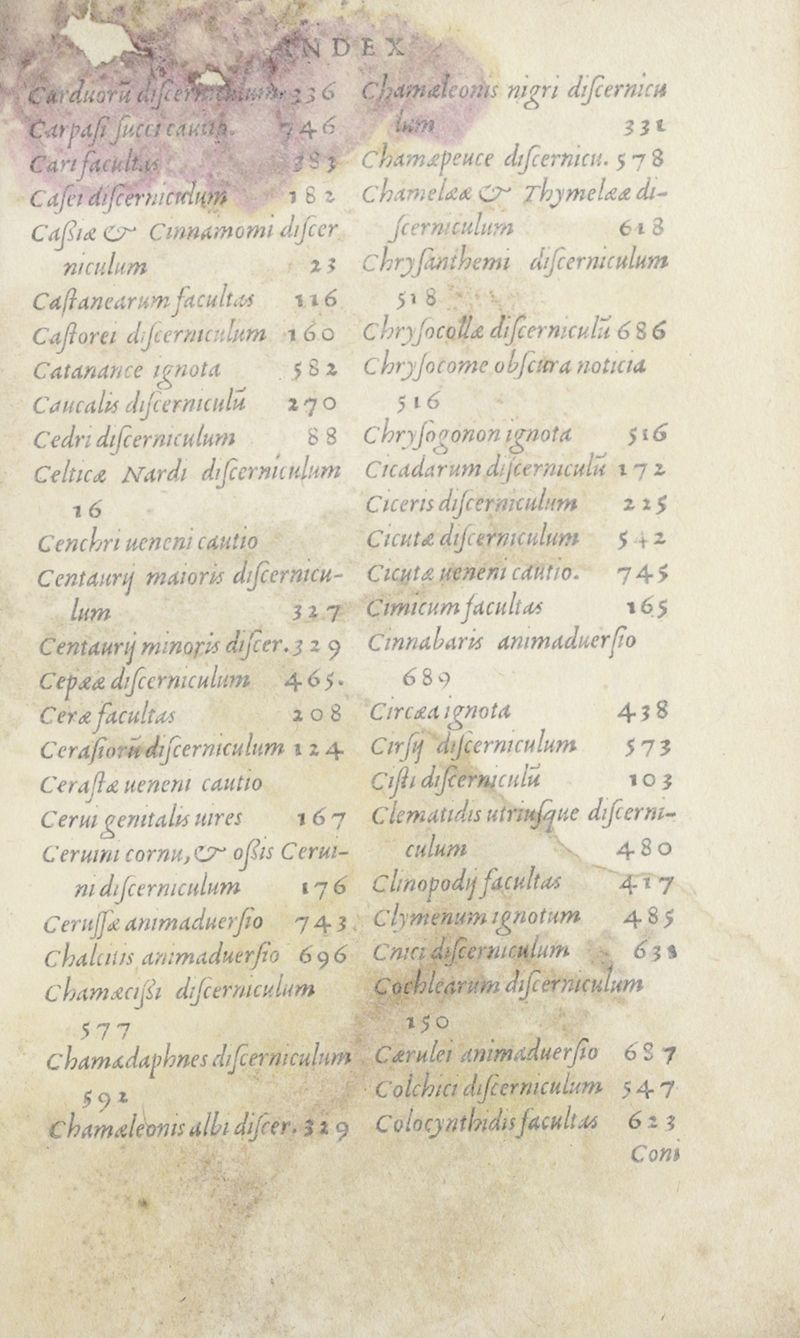 INDEX
Carduorū diſcerniculum. 336
Carpaſi ſucci cautio. 746
Cari facultas 383
Caſei diſcerniculum 182
Caßiæ & Cinnamomi diſcer
niculum 23
Caſtanearum facultas 116
Caſtorei diſcerniculum 160
Catanance ignota 582
Caucalis diſcerniculū 270
Cedri diſcerniculum 88
Celticæ Nardi diſcerniculum
16
Cenchri ueneni cautio
Centaurij maioris diſcernicu-
lum 327
Centaurij minoris diſcer. 329
Cepææ diſcerniculum 465.
Ceræ facultas 208
Ceraſiorū diſcerniculum 124
Ceraſtæ ueneni cautio
Cerui genitalis uires 167
Ceruini cornu, & oßis Cerui-
ni diſcerniculum 176
Ceruſſæ animaduerſio 743
Chalcitis animaduerſio 696
Chamæcißi diſcerniculum
577
Chamædaphnes diſcerniculum
592
Chamæleonis albi diſcer. 329
Chamæleonis nigri diſcernicu
lum 331
Chamæpeuce diſcernicu. 578
Chamelææ & Thymelææ di-
ſcerniculum 618
Chryſanthemi diſcerniculum
518
Chryſocollæ diſcerniculū 686
Chryſocome obſcura noticia
516
Chryſogonon ignota 516
Cicadarum diſcerniculū 172
Ciceris diſcerniculum 225
Cicutæ diſcerniculum 542
Cicutæ ueneni cautio. 745
Cimicum facultas 165
Cinnabaris animaduerſio
689
Circæa ignota 438
Cirſij diſcerniculum 573
Ciſti diſcerniculū 103
Clematidis utriuſque diſcerni-
culum 480
Clinopodij facultas 417
Clymenum ignotum 485
Cnici diſcerniculum 638
Cochlearum diſcerniculum
150
Cærulei animaduerſio 687
Colchici diſcerniculum 547
Colocynthidis facultas 623
Coni